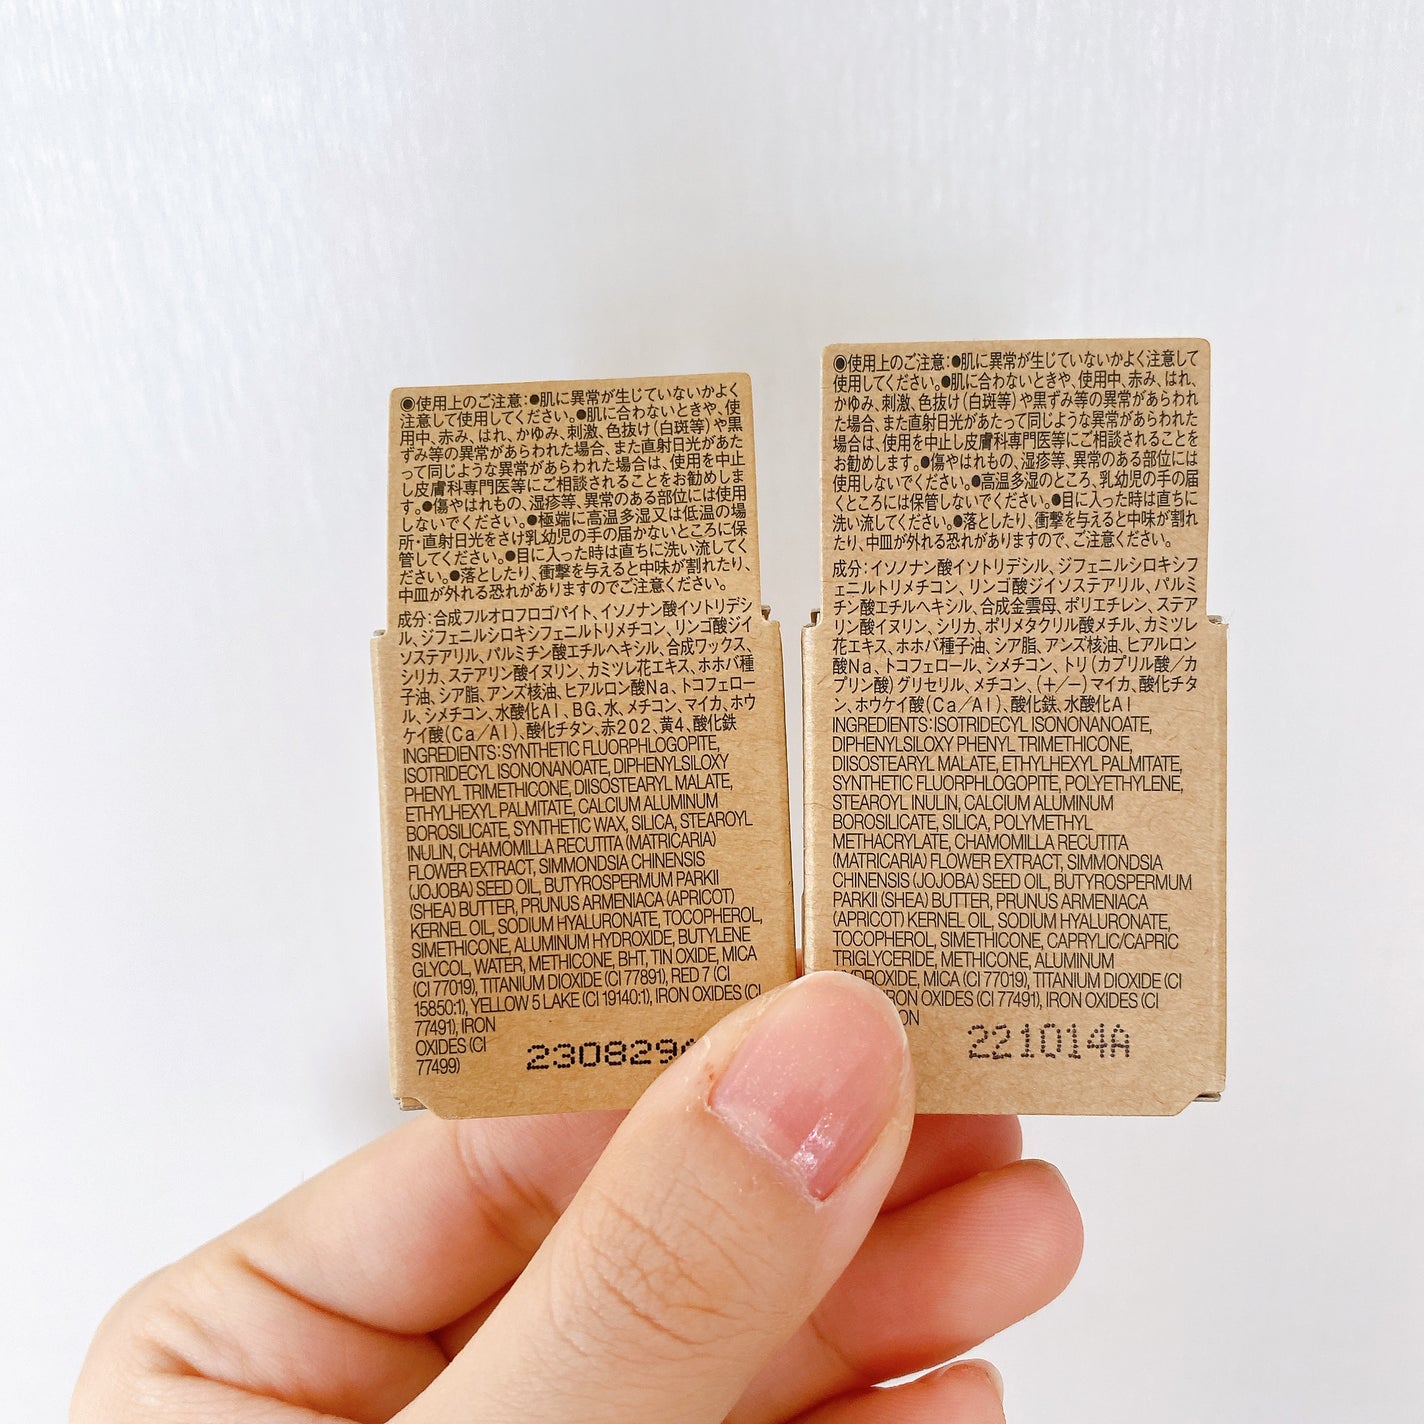 ◉使用上のご注意:●肌に異常が生じていないかよく
注意して使用してください。●肌に合わないときや、使
用中、赤み、はれ、かゆみ、刺激、色抜け(白斑等)や黒
ずみ等の異常があらわれた場合、また直射日光があた
って同じような異常があらわれた場合は、使用を中止
し皮膚科専門医等にご相談されることをお勧めしま
す。●傷やはれもの、湿疹等、異常のある部位には使用
しないでください。●極端に高温多湿又は低温の場
所・直射日光をさけ乳幼児の手の届かないところに保
管してください。●目に入った時は直ちに洗い流してく
ださい。●落としたり、衝撃を与えると中味が割れたり、
中皿が外れる恐れがありますのでご注意ください。
成分:合成フルオロフロゴパイト、イソノナン酸イソトリデシ
ル、ジフェニルシロキシフェニルトリメチコン、リンゴ酸ジイ
ソステアリル、パルミチン酸エチルヘキシル、合成ワックス、
シリカ、ステアリン酸イヌリン、カミツレ花エキス、ホホバ種
子油、シア脂、アンズ核油、ヒアルロン酸Na、トコフェロー
ル、シメチコン、水酸化Al、BG、水、メチコン、マイカ、ホウ
ケイ酸(Ca/Al)、酸化チタン、赤202、黄4、酸化鉄
INGREDIENTS:SYNTHETIC FLUORPHLOGOPITE,
ISOTRIDECYL ISONONANOATE, DIPHENYLSILOXY
PHENYL TRIMETHICONE, DIISOSTEARYL MALATE,
ETHYLHEXYL PALMITATE, CALCIUM ALUMINUM
BOROSILICATE, SYNTHETIC WAX, SILICA, STEAROYL
INULIN, CHAMOMILLA RECUTITA (MATRICARIA)
FLOWER EXTRACT, SIMMONDSIA CHINENSIS
(JOJOBA) SEED OIL, BUTYROSPERMUM PARKII
(SHEA) BUTTER, PRUNUS ARMENIACA (APRICOT)
KERNEL OIL, SODIUM HYALURONATE, TOCOPHEROL,
SIMETHICONE, ALUMINUM HYDROXIDE, BUTYLENE
GLYCOL, WATER, METHICONE, BHT, TIN OXIDE, MICA
(CI 77019), TITANIUM DIOXIDE (CI 77891), RED 7 (CI
15850:1), YELLOW 5 LAKE (CI 19140:1), IRON OXIDES (CI
77491), IRON
OXIDES (CI
77499)
230829
◉使用上のご注意:●肌に異常が生じていないかよく注意して
使用してください。●肌に合わないときや、使用中、赤み、はれ、
かゆみ、刺激、色抜け(白斑等)や黒ずみ等の異常があらわれ
た場合、また直射日光があたって同じような異常があらわれた
場合は、使用を中止し皮膚科専門医等にご相談されることを
お勧めします。●傷やはれもの、湿疹等、異常のある部位には
使用しないでください。●高温多湿のところ、乳幼児の手の届
くところには保管しないでください。●目に入った時は直ちに
洗い流してください。●落としたり、衝撃を与えると中味が割れ
たり、中皿が外れる恐れがありますので、ご注意ください。
成分:イソノナン酸イソトリデシル、ジフェニルシロキシフ
ェニルトリメチコン、リンゴ酸ジイソステアリル、パルミ
チン酸エチルヘキシル、合成金雲母、ポリエチレン、ステア
リン酸イヌリン、シリカ、ポリメタクリル酸メチル、カミツレ
花エキス、ホホバ種子油、シア脂、アンズ核油、ヒアルロン
酸Na、トコフェロール、シメチコン、トリ(カプリル酸/カ
プリン酸)グリセリル、メチコン、(+/−)マイカ、酸化チタ
ン、ホウケイ酸(Ca/Al)、酸化鉄、水酸化Al
INGREDIENTS:ISOTRIDECYL ISONONANOATE,
DIPHENYLSILOXY PHENYL TRIMETHICONE,
DIISOSTEARYL MALATE, ETHYLHEXYL PALMITATE,
SYNTHETIC FLUORPHLOGOPITE, POLYETHYLENE,
STEAROYL INULIN, CALCIUM ALUMINUM
BOROSILICATE, SILICA, POLYMETHYL
METHACRYLATE, CHAMOMILLA RECUTITA
(MATRICARIA) FLOWER EXTRACT, SIMMONDSIA
CHINENSIS (JOJOBA) SEED OIL, BUTYROSPERMUM
PARKII (SHEA) BUTTER, PRUNUS ARMENIACA
(APRICOT) KERNEL OIL, SODIUM HYALURONATE,
TOCOPHEROL, SIMETHICONE, CAPRYLIC/CAPRIC
TRIGLYCERIDE, METHICONE, ALUMINUM
HYDROXIDE, MICA (CI 77019), TITANIUM DIOXIDE (CI
IRON OXIDES (CI 77491), IRON OXIDES (CI
221014A